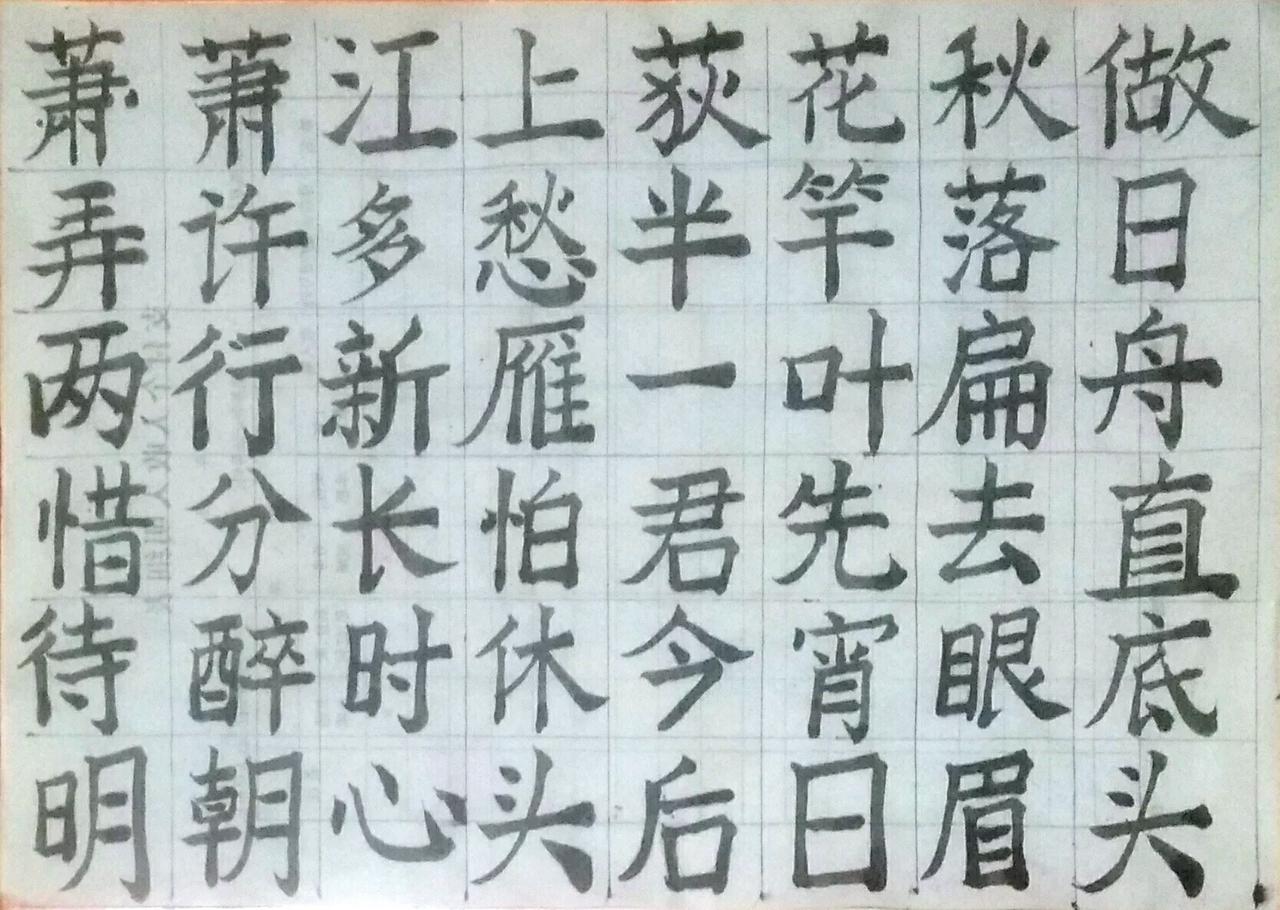 萧萧江上荻花秋做
弄许多愁半竿落日
两行新雁一叶扁舟
惜分长怕君先去直
待醉时休今宵眼底
明朝心头后日眉头